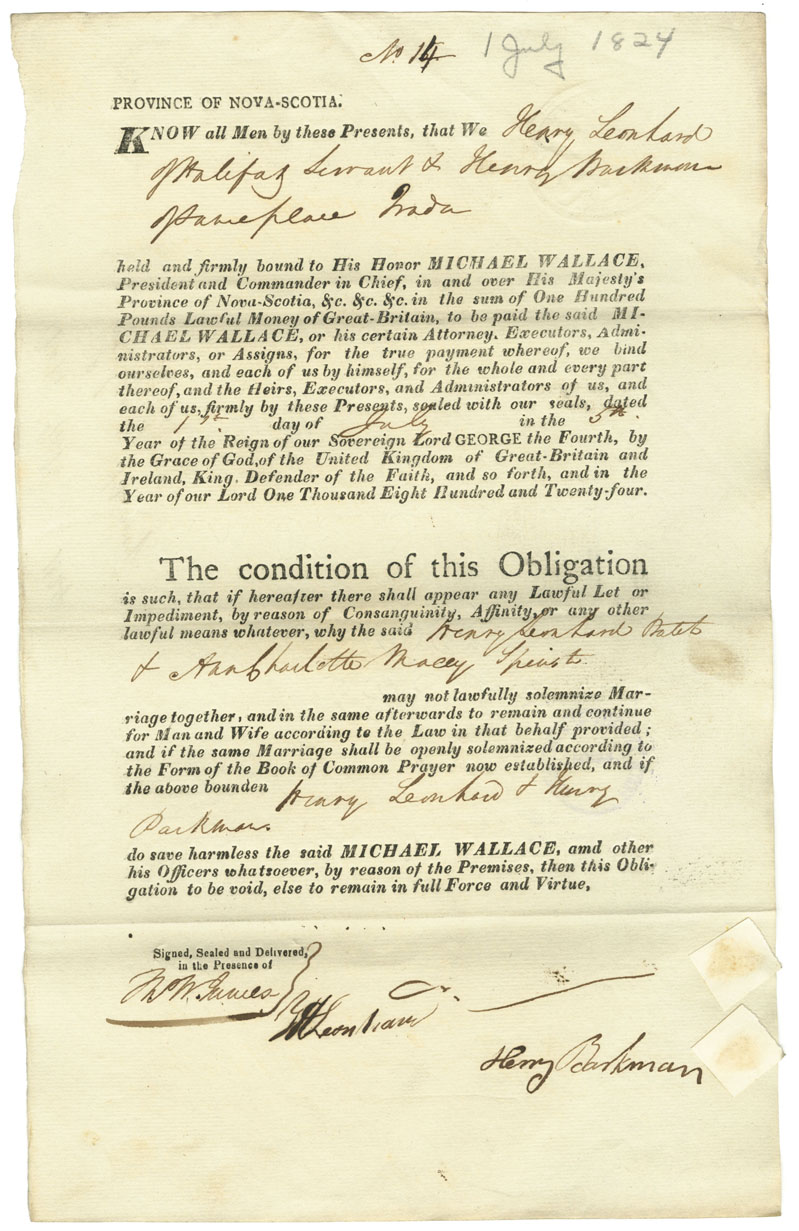 No 14 1 July 1824
PROVINCE OF NOVA-SCOTIA.
KNOW all Men by these Presents, that We Henry Leonhard
of Halifax Servant & Henry Barkman
of same place Trader
held and firmly bound to His Honor MICHAEL WALLACE,
President and Commander in Chief, in and over His Majesty's
Province of Nova-Scotia, &c. &c. &c. in the sum of One Hundred
Pounds Lawful Money of Great-Britain, to be paid the said MI-
CHAEL WALLACE, or his certain Attorney, Executors, Admi-
nistrators, or Assigns, for the true payment whereof, we bind
ourselves, and each of us by himself, for the whole and every part
thereof, and the Heirs, Executors, and Administrators of us, and
each of us, firmly by these Presents, sealed with our seals, dated
the 1st. day of July in the 5th.
Year of the Reign of our Sovereign Lord GEORGE the Fourth, by
the Grace of God, of the United Kingdom of Great-Britain and
Ireland, King, Defender of the Faith, and so forth, and in the
Year of our Lord One Thousand Eight Hundred and Twenty-four.
The condition of this Obligation
is such, that if hereafter there shall appear any Lawful Let or
Impediment, by reason of Consanguinity, Affinity, or any other
lawful means whatever, why the said Henry Leonhard Batch
& Ann Charlotte Macey Spinst
may not lawfully solemnize Mar-
riage together, and in the same afterwards to remain and continue
for Man and Wife according to the Law in that behalf provided;
and if the same Marriage shall be openly solemnized according to
the Form of the Book of Common Prayer now established, and if
the above bounden Henry Leonhard & Henry
Barkman
do save harmless the said MICHAEL WALLACE, amd other
his Officers whatsoever, by reason of the Premises, then this Obli-
gation to be void, else to remain in full Force and Virtue,
Signed, Sealed and Delivered,
in the Presence of
W. James
Leonhard
Henry Barkman